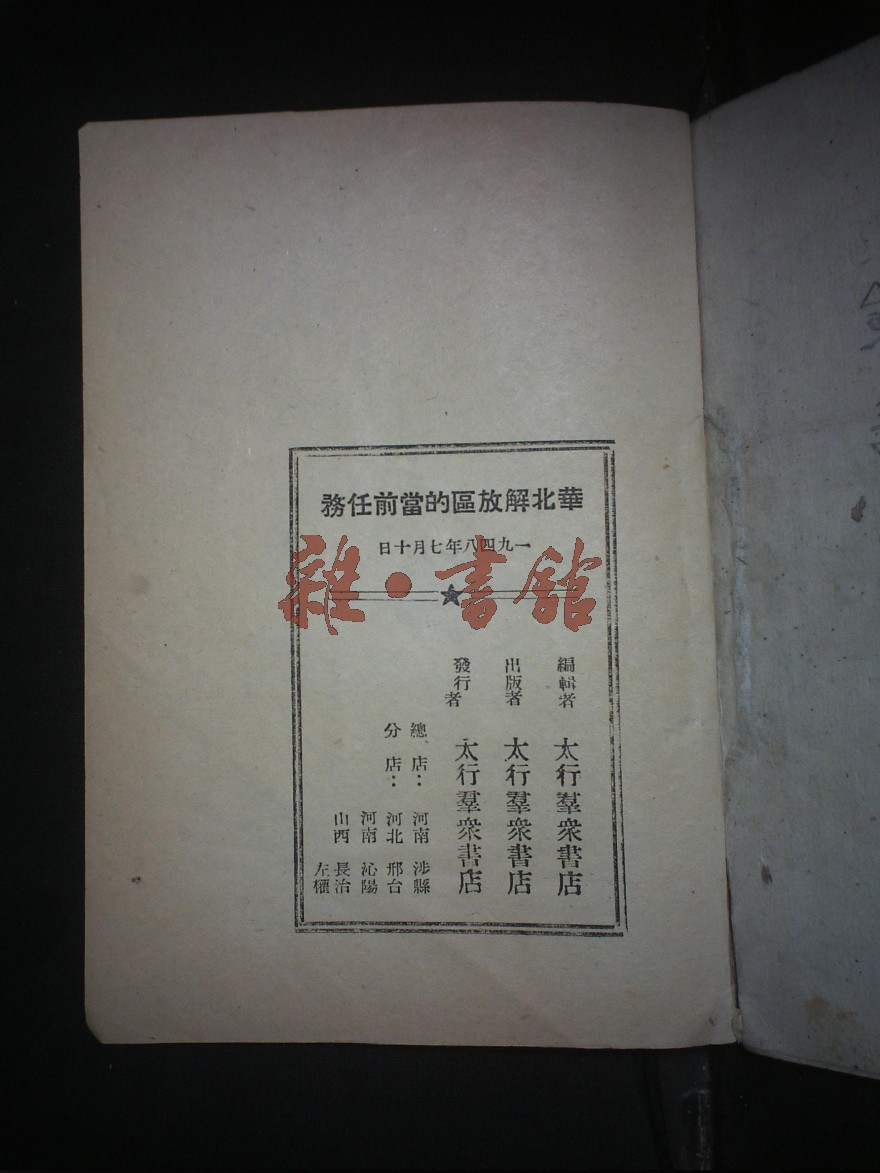 華北解放區的當前任務
一九四八年七月十日
雜·書館
編輯者 太行羣衆書店
出版者 太行羣衆書店
發行者 太行羣衆書店
總店：河南 涉縣
分店：河北 邢台
河南 沁陽
山西 長治
左權